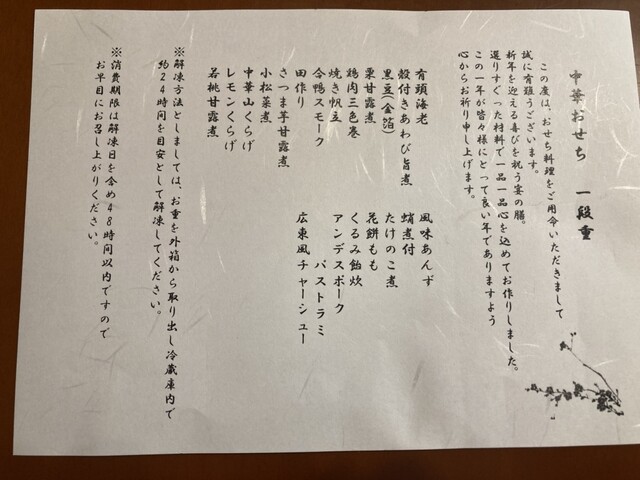 中華おせち 一段重
この度は、おせち料理をご用命いただきまして
誠に有難うございます。
新年を迎える喜びを祝う宴の膳。
選りすぐった材料で一品一品心を込めてお作りしました。
この一年が皆々様にとって良い年でありますよう
心からお祈り申し上げます。
有頭海老
殻付きあわび旨煮
黒豆(金箔)
栗甘露煮
鶏肉三色巻
焼き帆立
合鴨スモーク
田作り
さつま芋甘露煮
小松菜煮
中華山くらげ
レモンくらげ
若桃甘露煮
風味あんず
蛸煮付
たけのこ煮
花餅もも
くるみ飴炊
アンデスポーク
パストラミ
広東風チャーシュー
※解凍方法としましては、お重を外箱から取り出し冷蔵庫内で
約24時間を目安として解凍してください。
※消費期限は解凍日を含め48時間以内ですので
お早目にお召し上がりください。